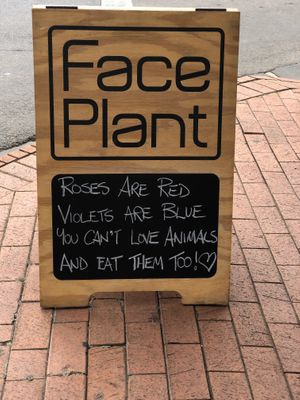 Face
Plant
ROSES ARE RED
VIOLETS ARE BLUE
YOU CAN'T LOVE ANIMALS
AND EAT THEM TOO!♡